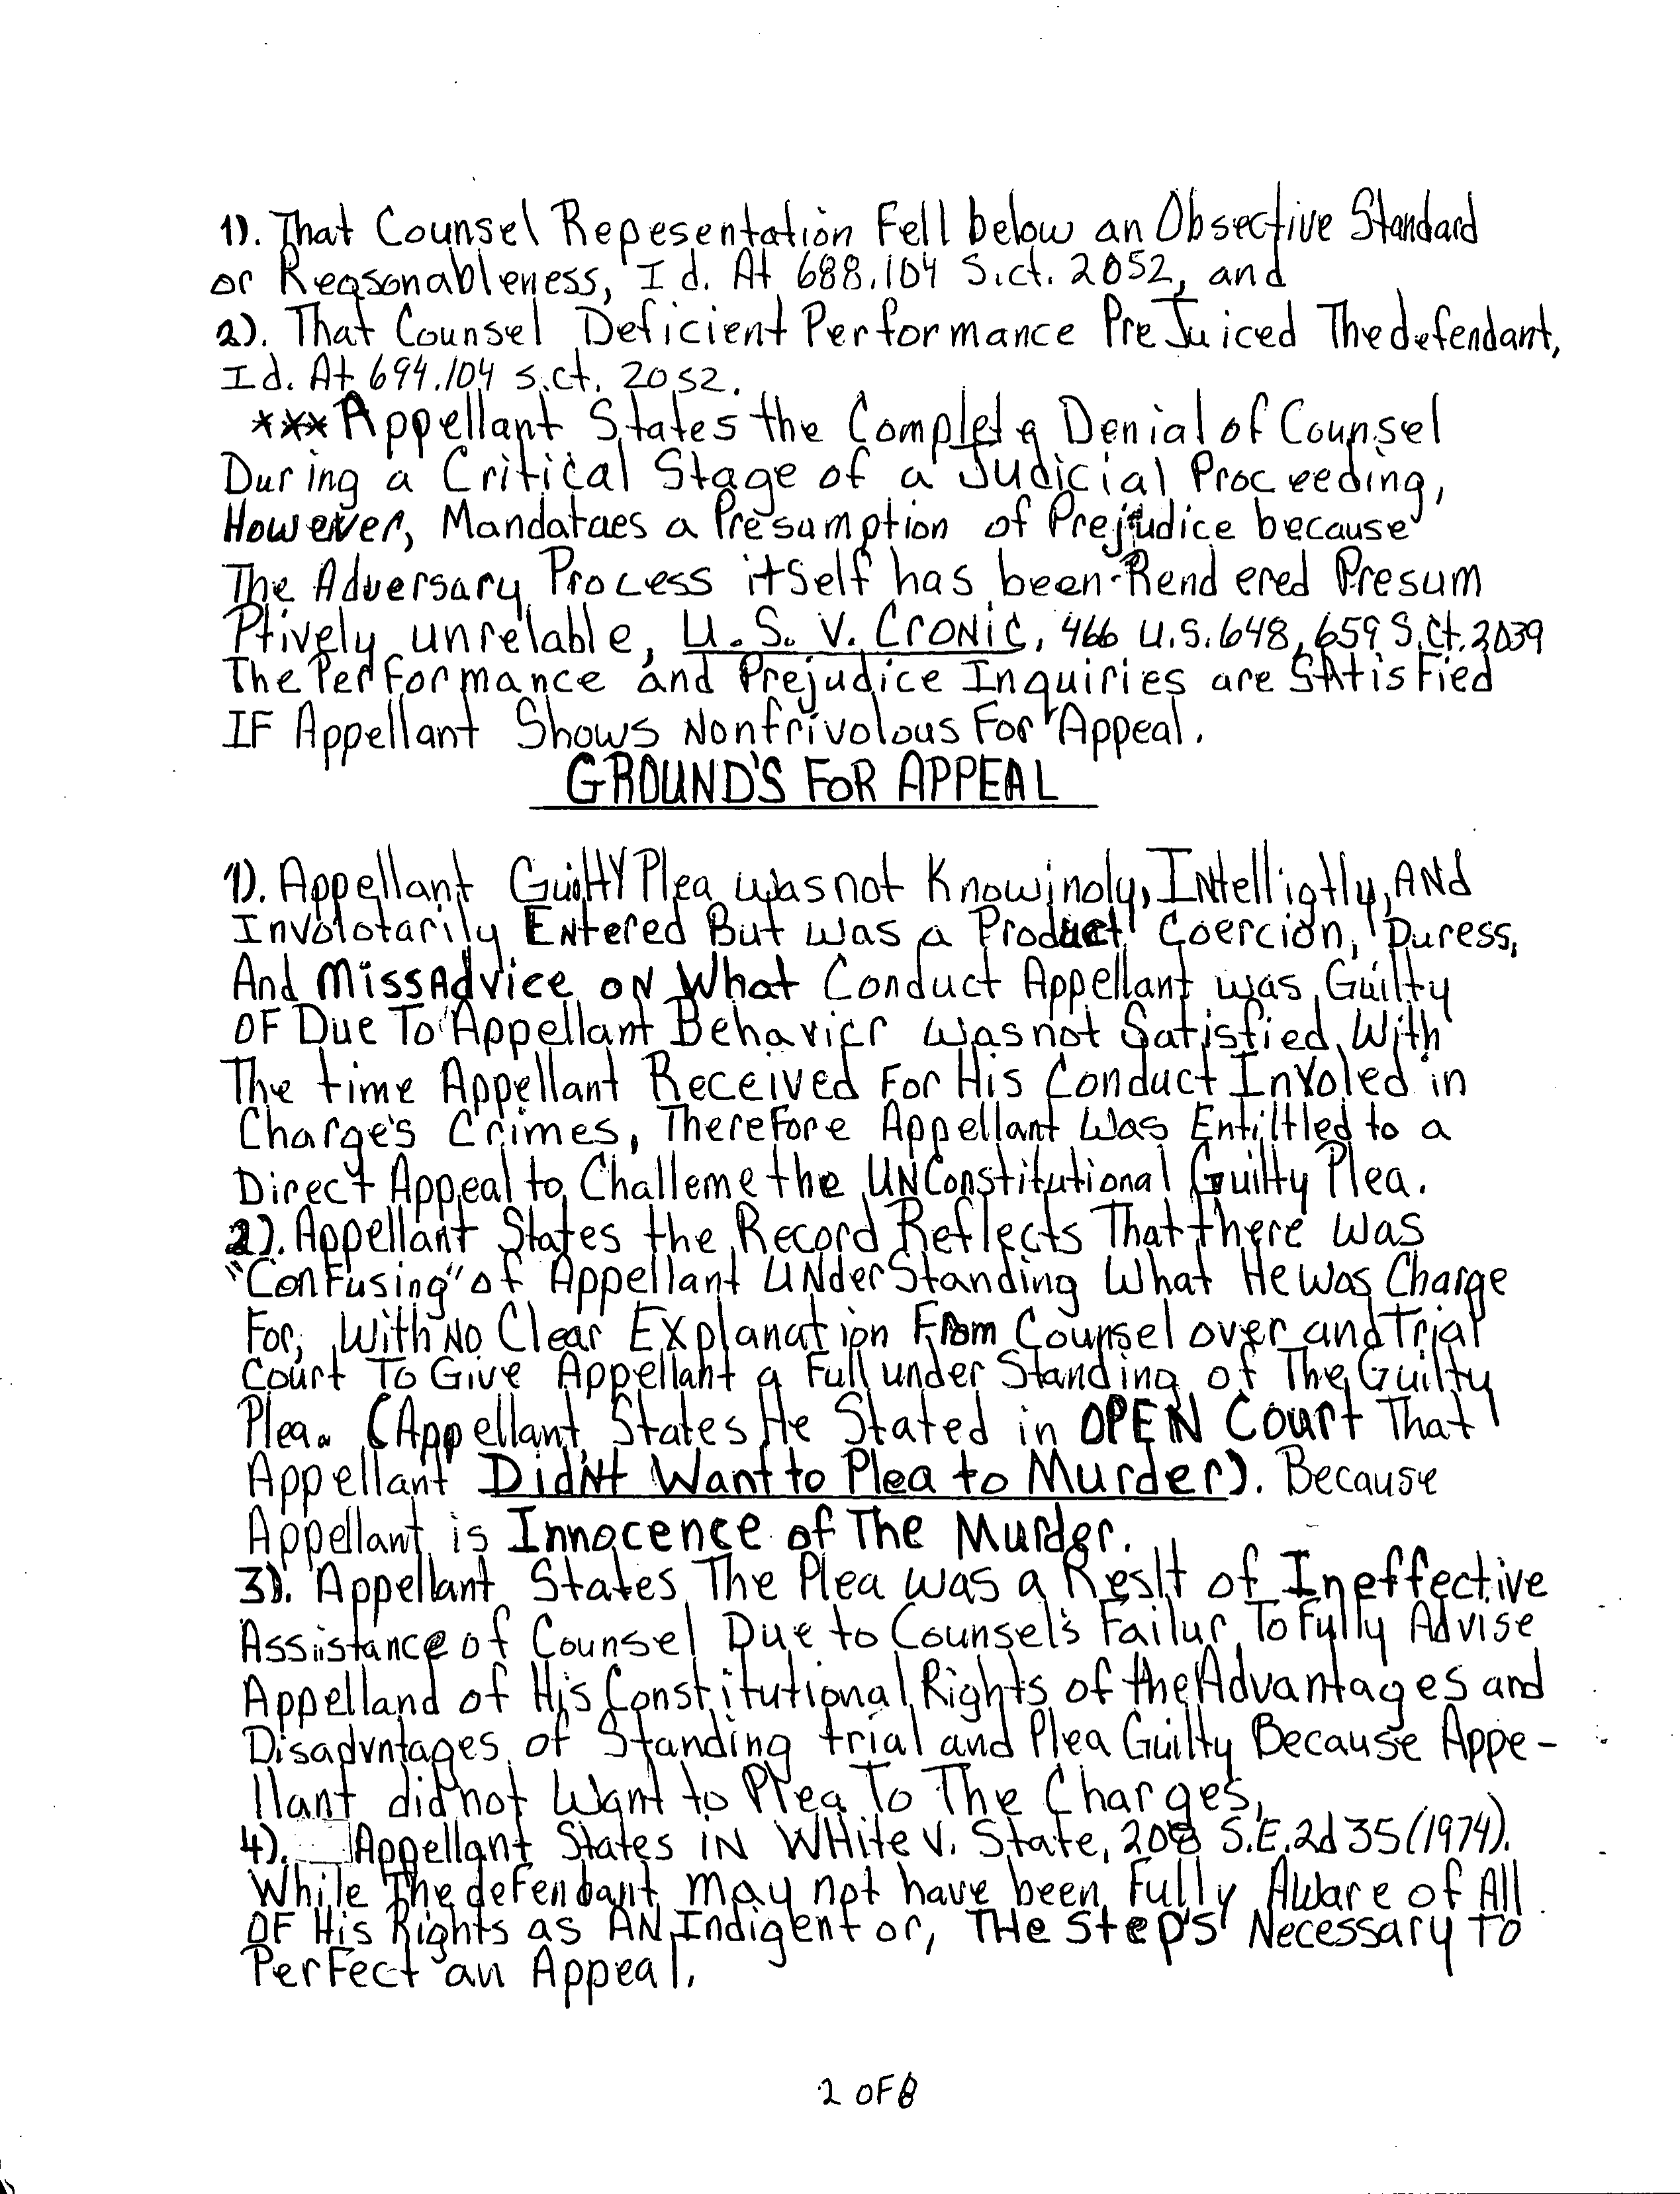 1). That Counsel Repesentation Fell below an Obsective Standard
or Reasonableness, Id. At 688.104 S.ct. 2052, and
2). That Counsel Deficient Performance PreJuiced The defendant,
Id. At 694.104 s.ct. 2052.
*** Appellant States the Complete Denial of Counsel
During a Critical Stage of a Judicial Proceeding,
However, Mandataes a Presumption of Prejudice because
The Adversary Process itself has been Rendered Presum
Ptively unrelable, U.S. v. Cronic, 466 U.S. 648, 659 S.Ct. 2039
The Performance and Prejudice Inquiries are SAtisfied
IF Appellant Shows Nonfrivolous For Appeal.
GROUND'S FOR APPEAL
1). Appellant Guilty Plea was not Knowinoly, INtelligtly, AND
Involotarily Entered But was a Product Coercion, Duress,
And MissAdvice oN What Conduct Appellant was Guilty
OF Due To Appellant Behavior was not Satisfied With
The time Appellant Received For His Conduct Involed in
Charge's Crimes, Therefore Appellant Was Entiltled to a
Direct Appeal to Challeme the UNConstitutional Guilty Plea.
2). Appellant States the Record Reflects That there was
"Confusing" of Appellant UNderStanding What He Was Charge
For, With No Clear Explanation From Counsel over and Trial
Court To Give Appellant a Full underStanding of The Guilty
Plea. (Appellant States He Stated in OPEN Court That
Appellant Didn't Want to Plea to Murder). Because
Appellant is Innocence of The Murder.
3). Appellant States The Plea was a Reslt of Ineffective
Assistance of Counsel Due to Counsel's Failur To Fully Advise
Appelland of His Constitutional Rights of the Advantages and
Disadvntages of Standing trial and Plea Guilty Because Appe-
llant did not Want to Plea To The Charges,
4). Appellant States iN WHite v. State, 208 S.E.2d 35 (1974).
While The defendant may not have been Fully Aware of All
OF His Rights as AN Indigent or, THe Step's Necessary To
Perfect an Appeal.
2 OF 8